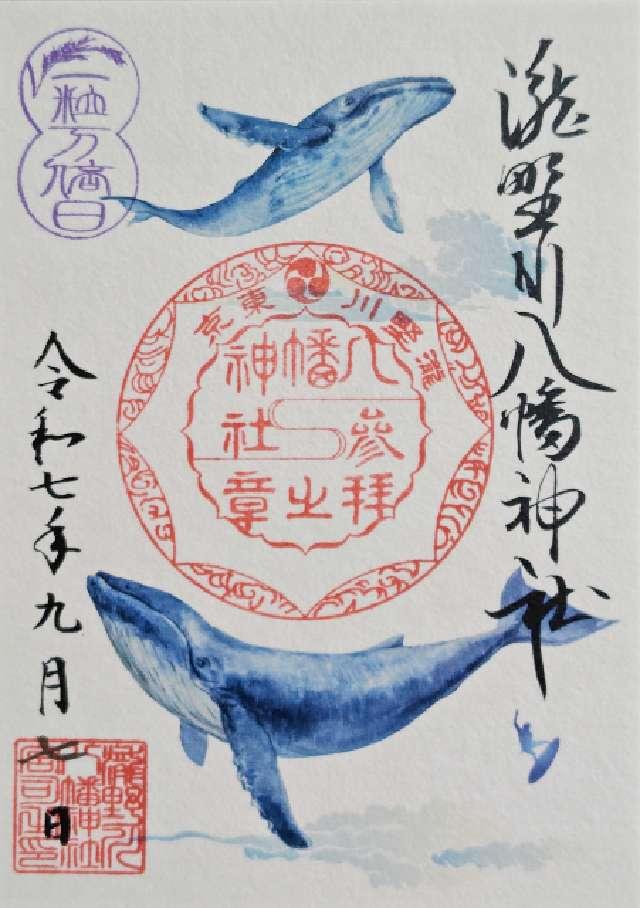 瀧野川八幡神社
一粒万倍日
東京
瀧野川
八幡神社
参拝之章
令和七年九月七日
瀧野川八幡神社宮司之印